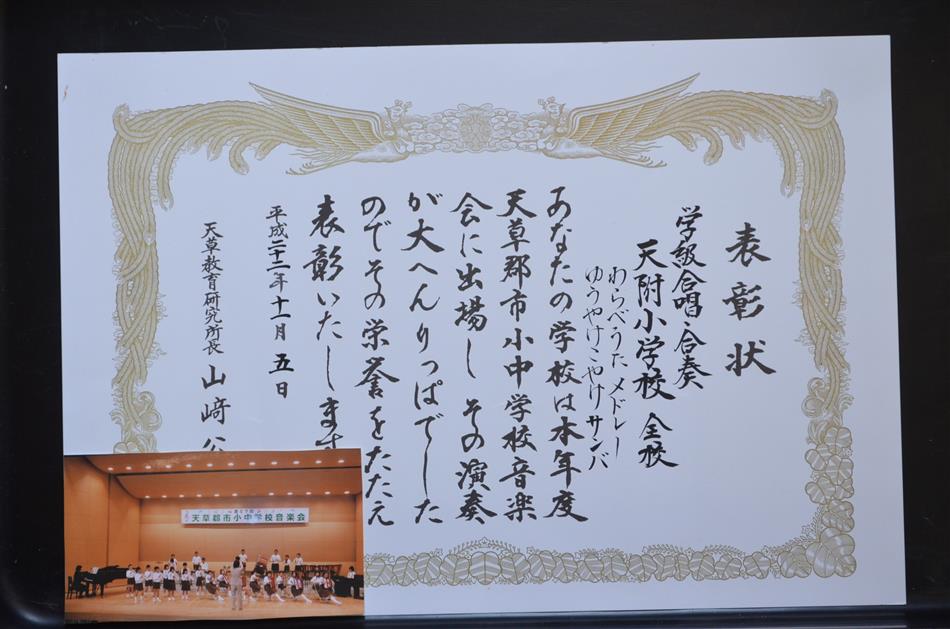 表彰状
学級合唱・合奏
天附小学校 全校
わらべうた メドレー
ゆうやけこやけサンバ
あなたの学校は本年度
天草郡市小中学校音楽
会に出場し その演奏
が大へんりっぱでした
のでその栄誉をたたえ
表彰いたします
平成二十二年十一月 五日
天草教育研究所長 山﨑
天草郡市小中学校音楽会